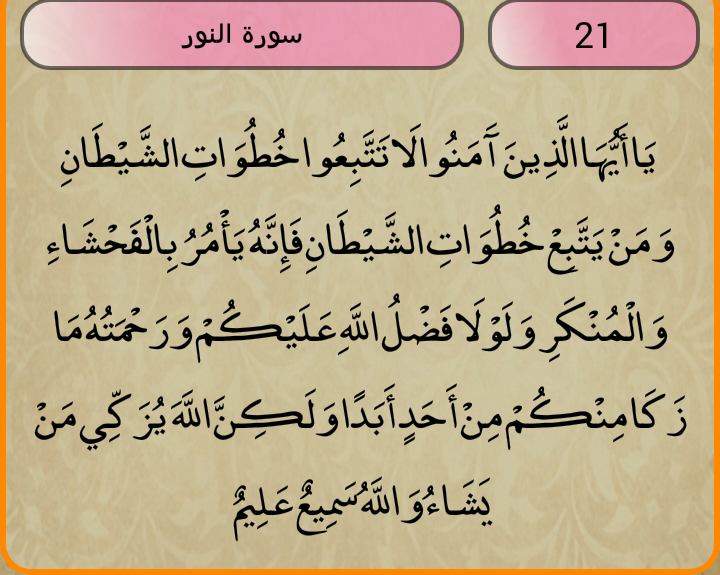 سورة النور
21
يَا أَيُّهَا الَّذِينَ آَمَنُوا لَا تَتَّبِعُوا خُطُوَاتِ الشَّيْطَانِ
وَمَنْ يَتَّبِعْ خُطُوَاتِ الشَّيْطَانِ فَإِنَّهُ يَأْمُرُ بِالْفَحْشَاءِ
وَالْمُنْكَرِ وَلَوْلَا فَضْلُ اللَّهِ عَلَيْكُمْ وَرَحْمَتُهُ مَا
زَكَا مِنْكُمْ مِنْ أَحَدٍ أَبَدًا وَلَكِنَّ اللَّهَ يُزَكِّي مَنْ
يَشَاءُ وَاللَّهُ سَمِيعٌ عَلِيمٌ